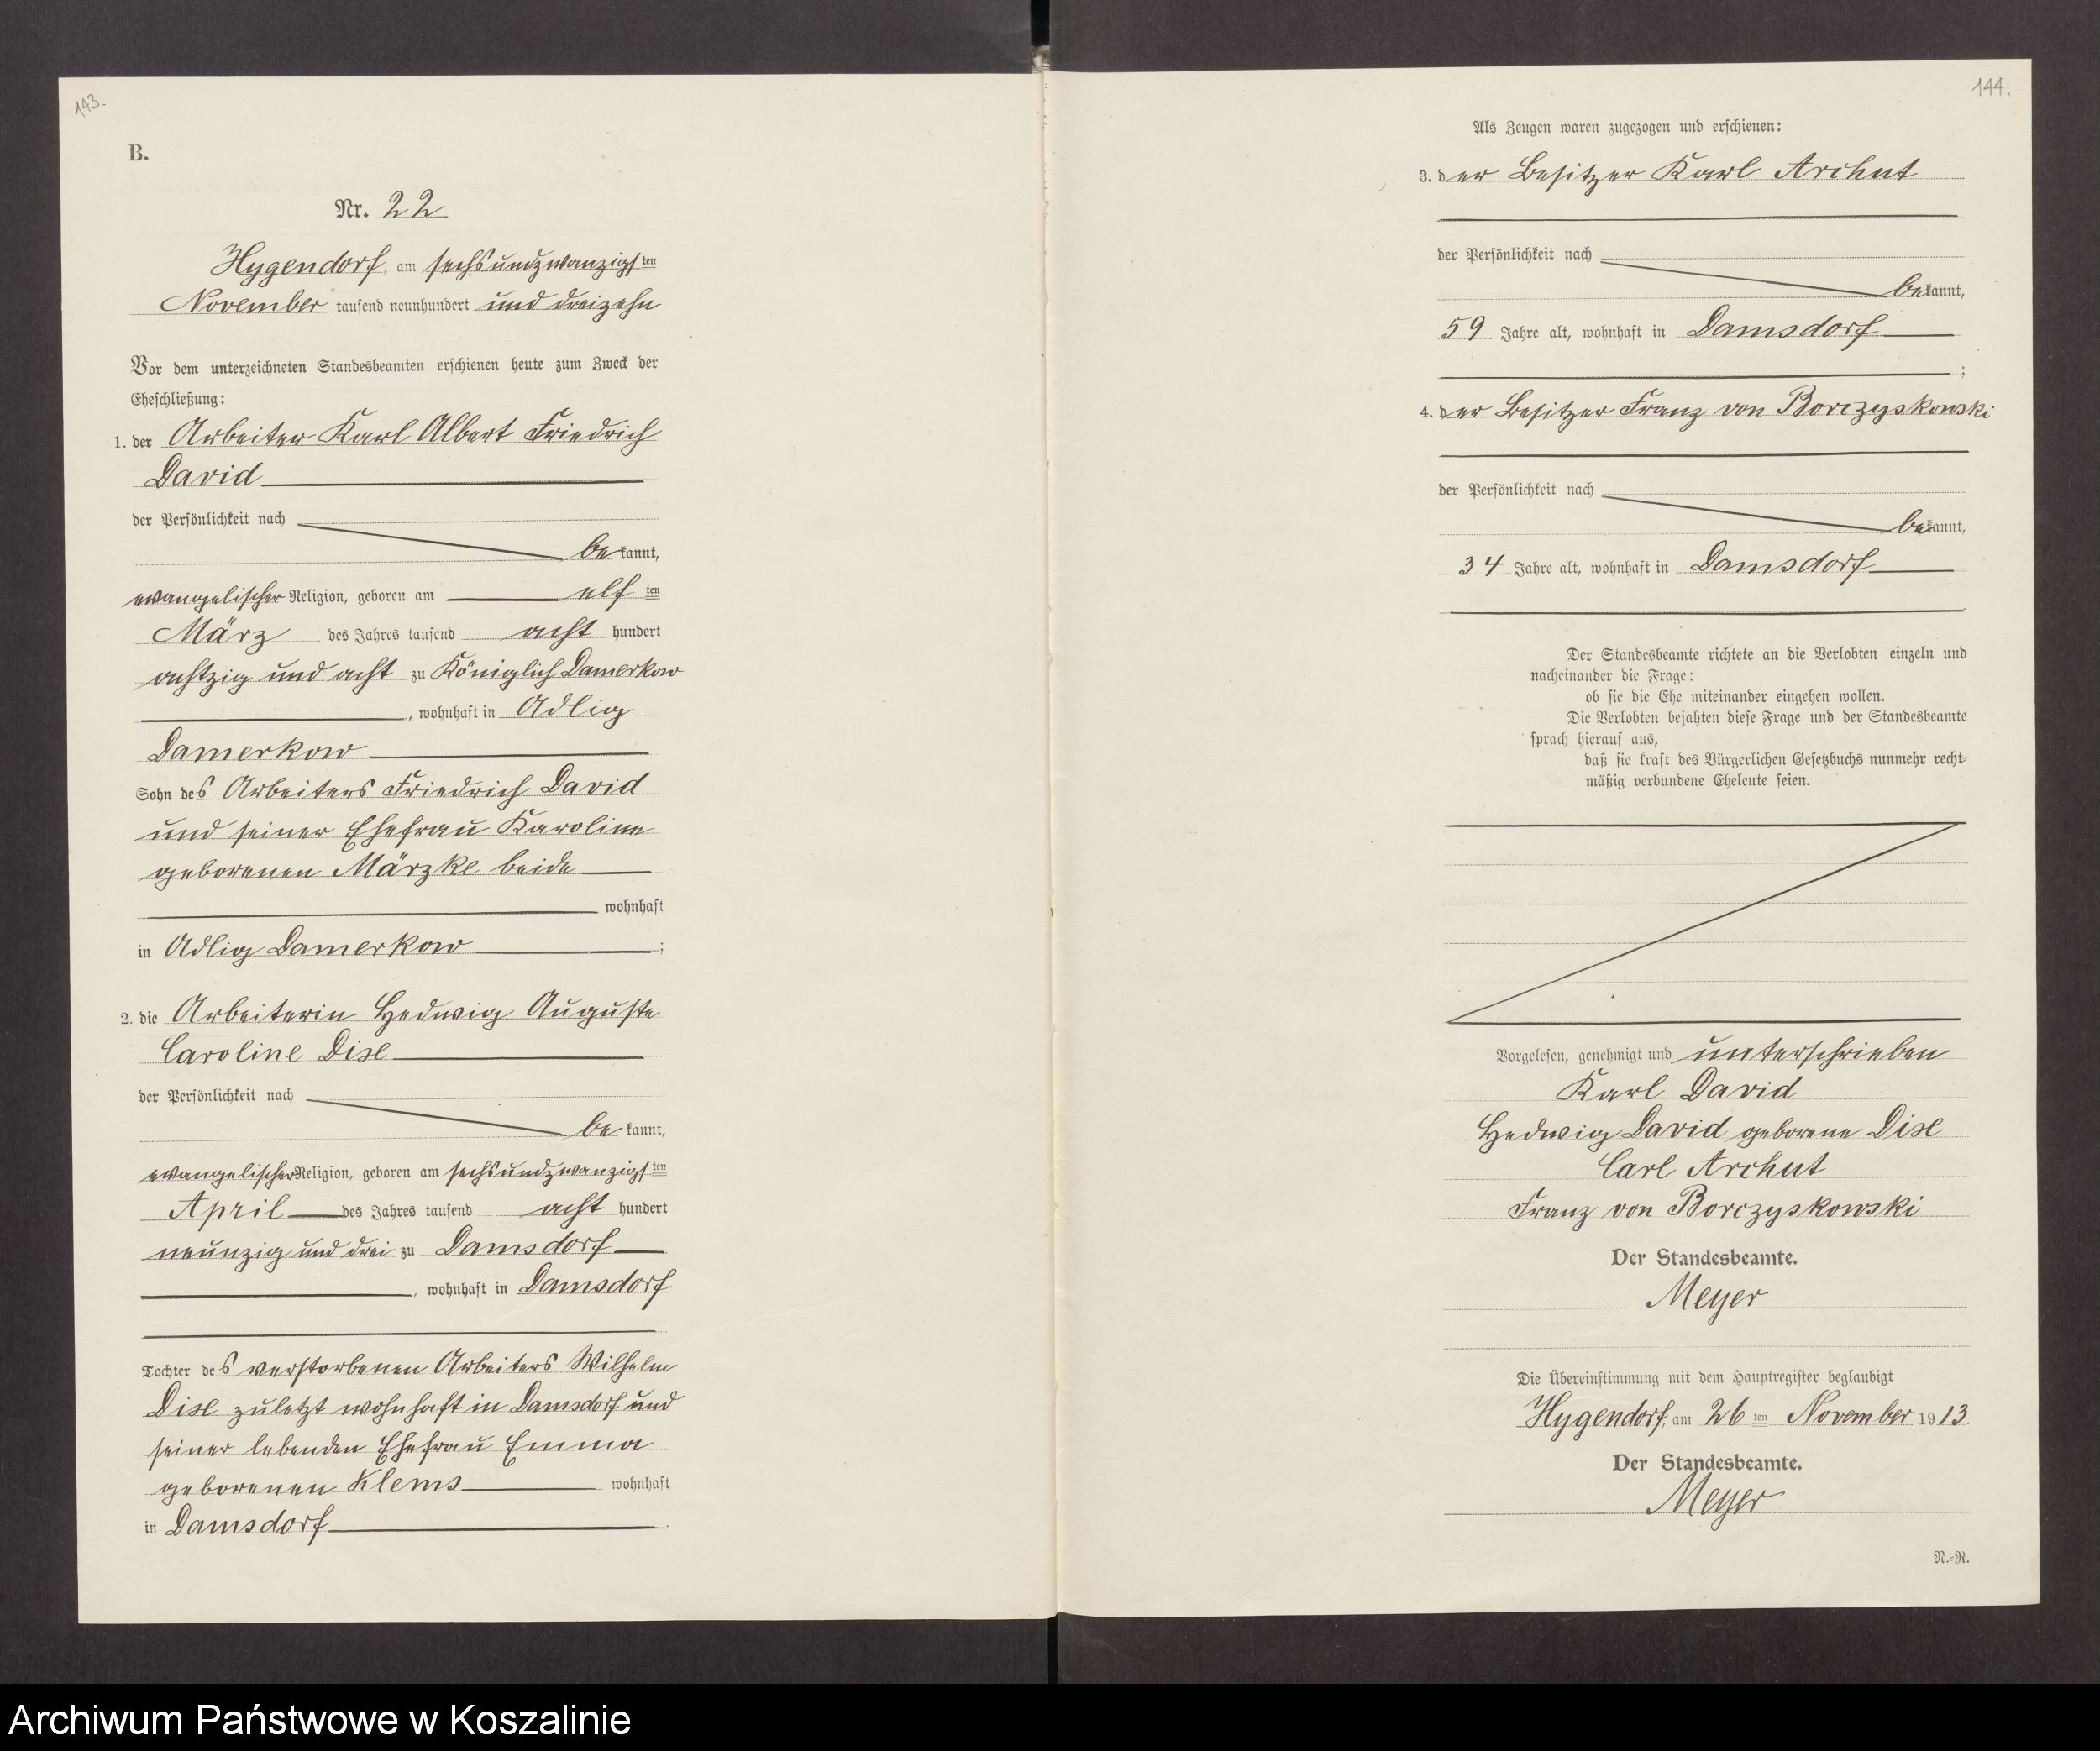 143.
B.
Nr. 22
Hygendorf, am sechsundzwanzigsten
November tausend neunhundert und dreizehn
Vor dem unterzeichneten Standesbeamten erschienen heute zum Zweck der
Eheschließung:
1. der Arbeiter Karl Albert Friedrich
David
der Persönlichkeit nach
bekannt,
evangelischer Religion, geboren am elften
März des Jahres tausend acht hundert
achtzig und acht zu Königlich Damerkow
, wohnhaft in Adlig
Damerkow
Sohn des Arbeiters Friedrich David
und seiner Ehefrau Karoline
geborenen Märzke beide
wohnhaft
in Adlig Damerkow ;
2. die Arbeiterin Hedwig Auguste
Caroline Dise
der Persönlichkeit nach
bekannt,
evangelischer Religion, geboren am sechsundzwanzigsten
April des Jahres tausend acht hundert
neunzig und drei zu Damsdorf
, wohnhaft in Damsdorf
Tochter des verstorbenen Arbeiters Wilhelm
Dise zuletzt wohnhaft in Damsdorf und
seiner lebenden Ehefrau Emma
geborenen Klems wohnhaft
in Damsdorf .
144.
Als Zeugen waren zugezogen und erschienen:
3. der Besitzer Karl Archut
der Persönlichkeit nach
bekannt,
59 Jahre alt, wohnhaft in Damsdorf
;
4. der Besitzer Franz von Borczyskowski
der Persönlichkeit nach
bekannt,
34 Jahre alt, wohnhaft in Damsdorf
Der Standesbeamte richtete an die Verlobten einzeln und
nacheinander die Frage:
ob sie die Ehe miteinander eingehen wollen.
Die Verlobten bejahten diese Frage und der Standesbeamte
sprach hierauf aus,
daß sie kraft des Bürgerlichen Gesetzbuchs nunmehr recht-
mäßig verbundene Eheleute seien.
Vorgelesen, genehmigt und unterschrieben
Karl David
Hedwig David geborene Dise
Carl Archut
Franz von Borczyskowski
Der Standesbeamte.
Meyer
Die Übereinstimmung mit dem Hauptregister beglaubigt
Hygendorf, am 26ten November 1913.
Der Standesbeamte.
Meyer
N.-R.
Archiwum Państwowe w Koszalinie